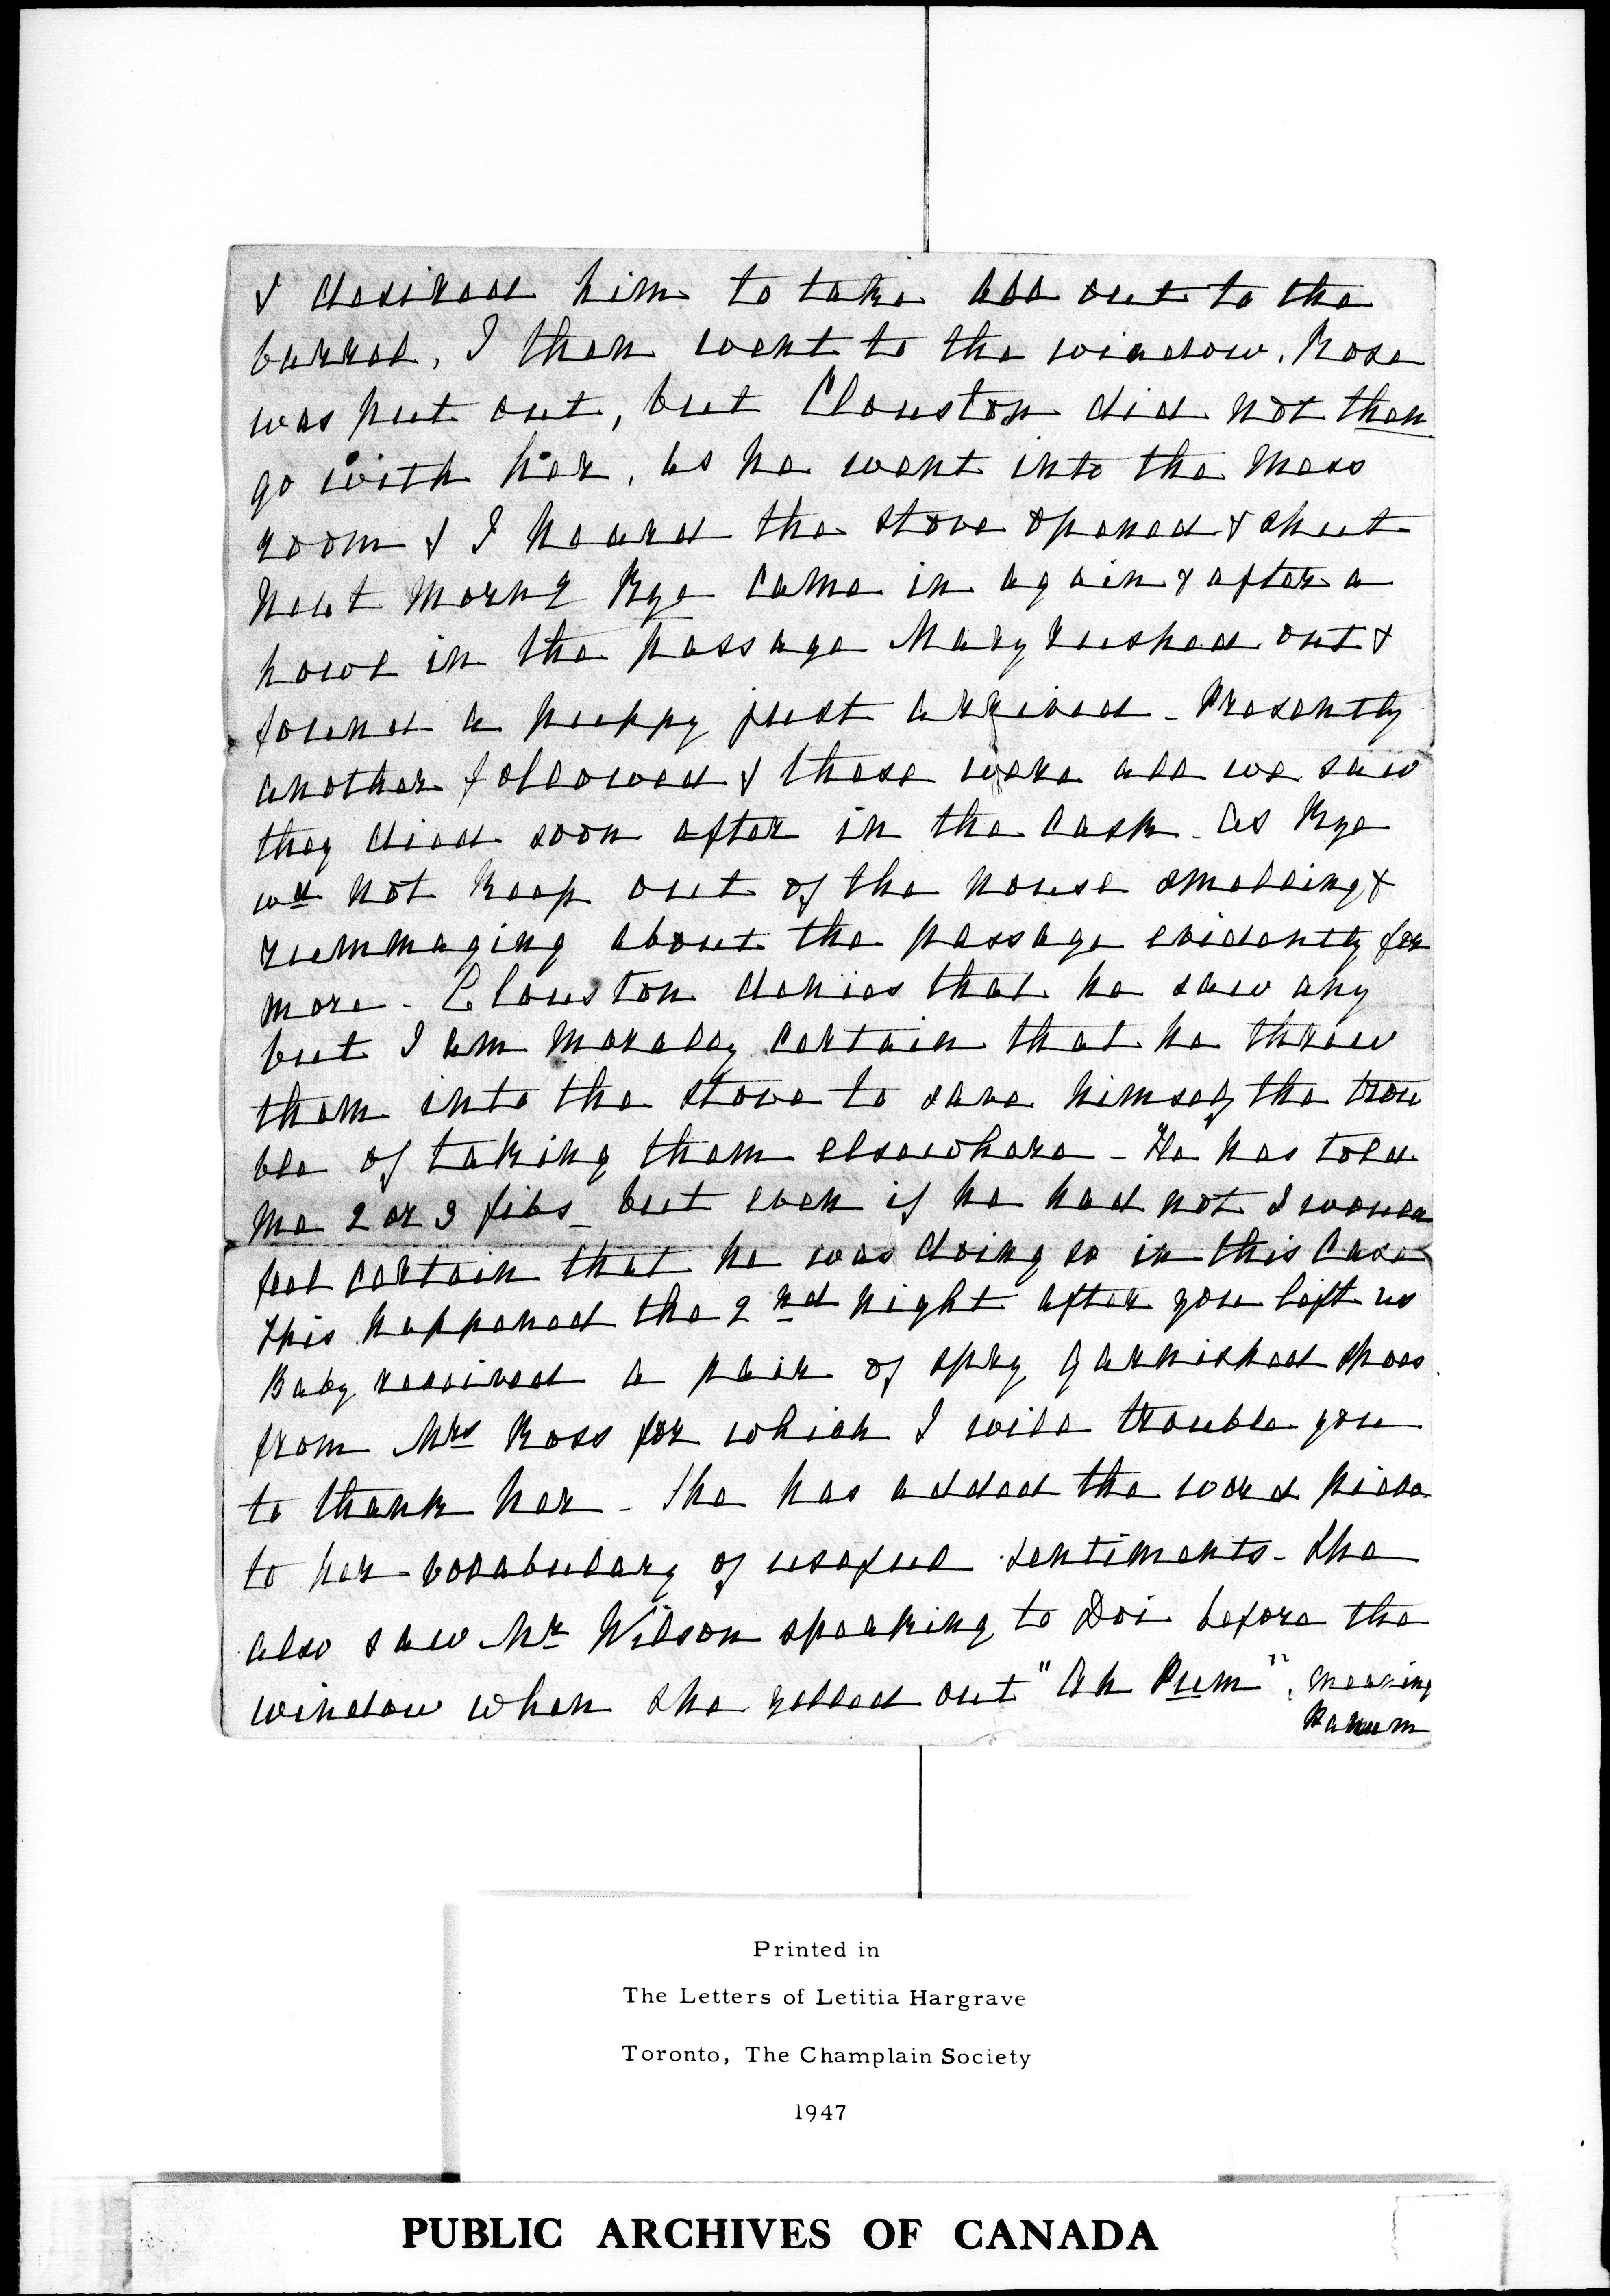 & desired him to take all out to the
barrel, I then went to the window. Rose
was put out, but Clouston did not then
go with her, as he went into the mess
room & I heard the stove opened & shut
Next Morng Rye came in again & after a
howl in the passage Mary rushed out &
found a puppy just arrived - Presently
another followed & these were all we saw
they died soon after in the cask - As Rye
wd not keep out of the house smelling &
rummaging about the passage evidently for
more - Clouston denies that he saw any
but I am morally certain that he threw
them into the stove to save himself the trou
ble of taking them elsewhere - He has told
me 2 or 3 fibs - but even if he had not I would
feel certain that he was doing so in this case
This happened the 2nd night after you left us
Baby received a pair of spry garnished shoes
from Mrs Ross for which I will trouble you
to thank her - She has added the word
to her vocabulary of useful sentiments - She
also saw Mr Wilson speaking to Doi before the
window when she yelled out "Ah Pum", meaning
Printed in
The Letters of Letitia Hargrave
Toronto, The Champlain Society
1947
PUBLIC ARCHIVES OF CANADA